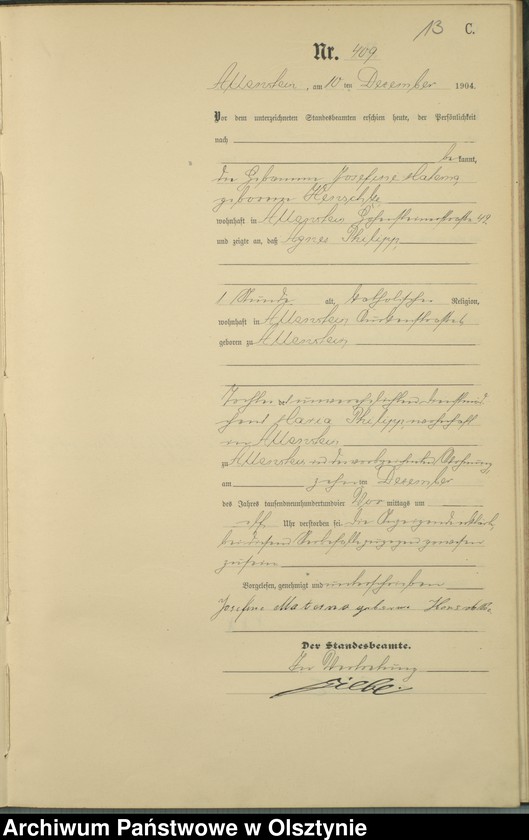 13 C.
Nr. 409
Allenstein, am 10 ten Dezember 1904.
Vor dem unterzeichneten Standesbeamten erschien heute, der Persönlichkeit
nach
be kannt,
die Hebamme Josefine Materna
geborene
wohnhaft in Allenstein Hohensteinerstraße 49
und zeigte an, daß Agnes Philipp
1 Stunde alt, katholischer Religion,
wohnhaft in Allenstein
geboren zu Allenstein
Tochter der unverehelichten Dienstmagd
Maria Philipp wohnhaft
in Allenstein
zu Allenstein in der vorbezeichneten Wohnung
am zehnten Dezember
des Jahres tausendneunhundertundvier Vor mittags um
elf Uhr verstorben sei. Die Anzeigende erklärte,
bei diesem Sterbefalle zugegen gewesen
zu sein
Vorgelesen, genehmigt und unterschrieben
Josefine Materna geborene
Der Standesbeamte.
In Vertretung
Archiwum Państwowe w Olsztynie